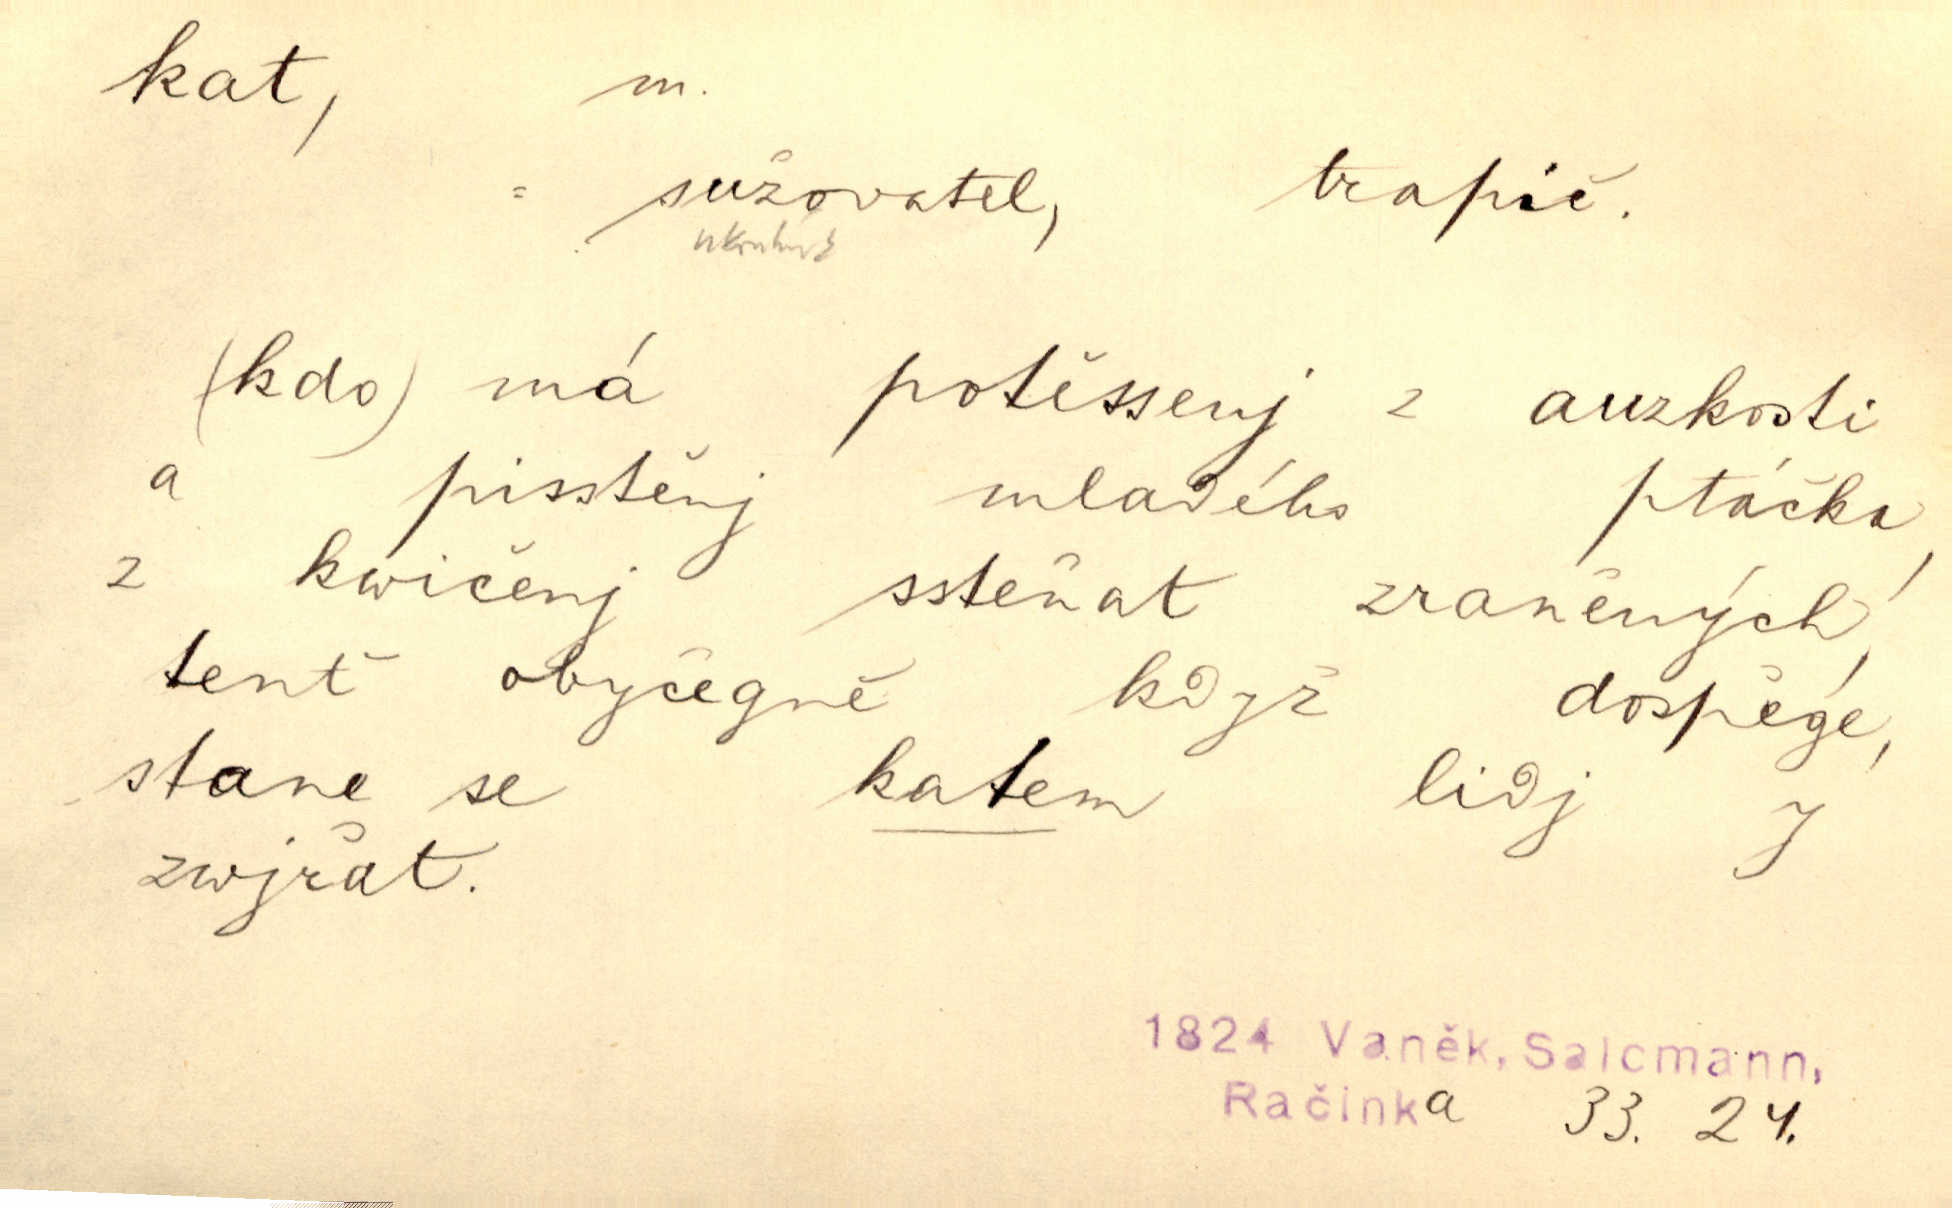 kat, m.
= sužovatel, trapič.
(kdo) má potěssenj z auzkosti
a pisstěnj mladého ptáčka,
z kwičenj sstěňat zraněných,
tenť obyčegně když dospěge,
stane se katem lidj y
zwjřat.
1824 Vaněk, Salcmann,
Račinka 33. 24.